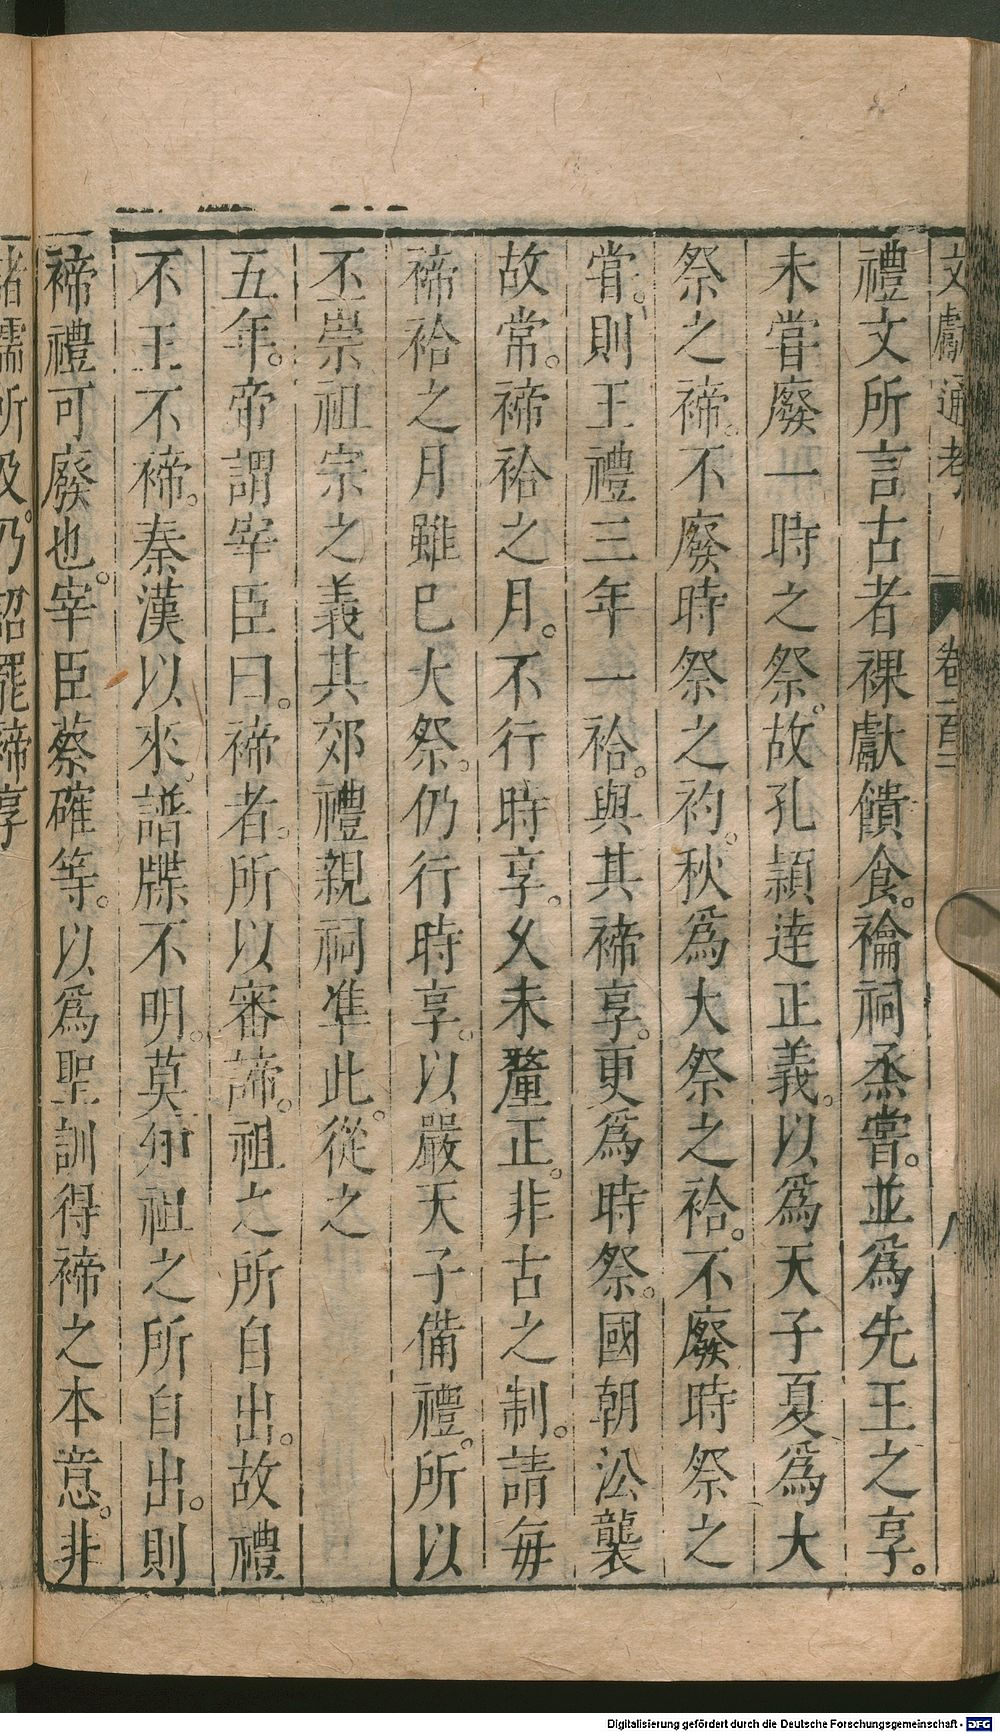 文獻通考　卷一百二　八
禮文所言古者祼獻饋食。禴祠烝嘗。並爲先王之享。
未嘗廢一時之祭。故孔頴逹正義。以爲天子夏爲大
祭之禘。不廢時祭之礿。秋爲大祭之祫。不廢時祭之
嘗。則王禮三年一祫。與其禘享。更爲時祭。國朝㳂襲
故常。禘祫之月。不行時享。久未釐正。非古之制。請每
禘祫之月雖已大祭。仍行時享。以嚴天子備禮。所以
丕崇祖宗之義其郊禮親祠凖此。從之
五年。帝謂宰臣曰。禘者。所以審諦。祖之所自出。故禮
不王不禘。秦漢以來。譜牒不明。莫知祖之所自出。則
禘禮可廢也。宰臣蔡確等。以爲聖訓得禘之本意。非
諸儒所及。乃詔罷禘享
Digitalisierung gefördert durch die Deutsche Forschungsgemeinschaft - DFG